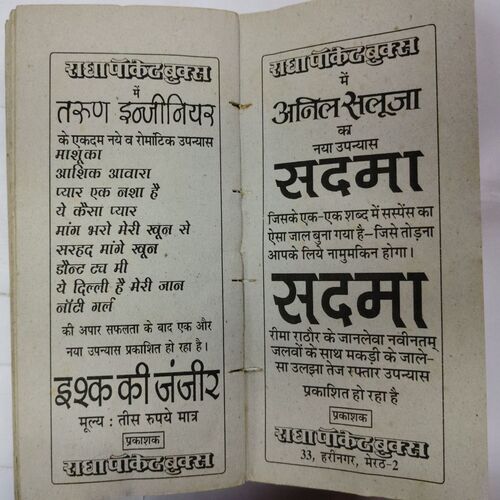 राधा पॉकेट बुक्स
में
तरुण इन्जीनियर
के एकदम नये व रोमांटिक उपन्यास
माशूका
आशिक आवारा
प्यार एक नशा है
ये कैसा प्यार
मांग भरो मेरी खून से
सरहद मांगे खून
डौन्ट टच मी
ये दिल्ली है मेरी जान
नॉटी गर्ल
की अपार सफलता के बाद एक और
नया उपन्यास प्रकाशित हो रहा है।
इश्क की जंजीर
मूल्य : तीस रुपये मात्र
प्रकाशक
राधा पॉकेट बुक्स
राधा पॉकेट बुक्स
में
अनिल सलूजा
का
नया उपन्यास
सदमा
जिसके एक-एक शब्द में सस्पेंस का
ऐसा जाल बुना गया है–जिसे तोड़ना
आपके लिये नामुमकिन होगा।
सदमा
रीमा राठौर के जानलेवा नवीनतम्
जलवों के साथ मकड़ी के जाले-
सा उलझा तेज रफ्तार उपन्यास
प्रकाशित हो रहा है
प्रकाशक
राधा पॉकेट बुक्स
33, हरीनगर, मेरठ-2